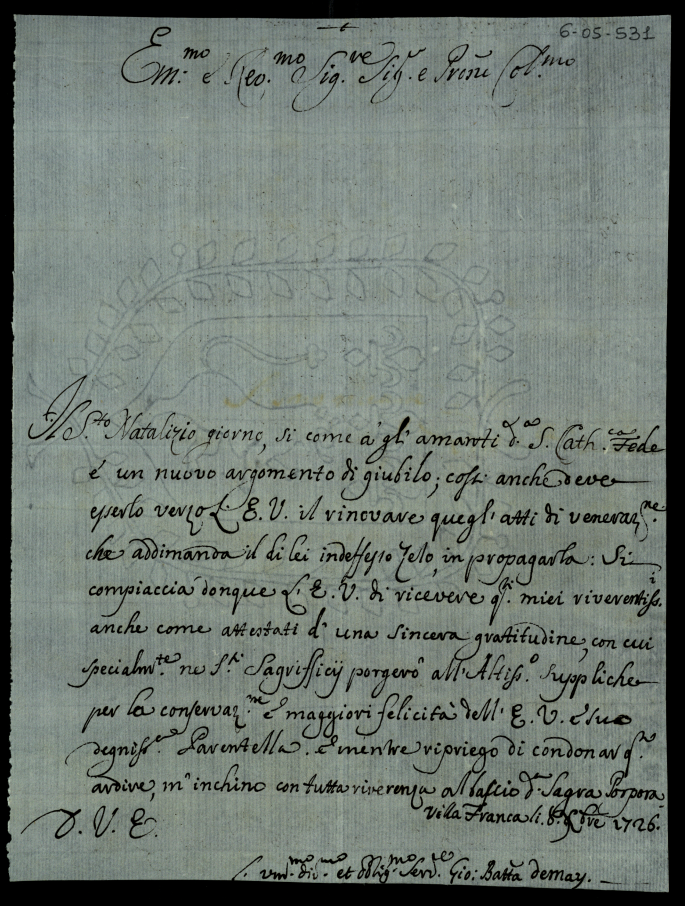 6-05-531
Em:mo e Rev.mo Sig.re Sig.r e Prōn Col.mo
Il S.to Natalizio giorno, si come à gl' amanti d.a S. Cath.ca Fede
é un nuovo argomento di giubilo; così anche deve
esserlo verso L' E. V. il rinovare quegl' atti di veneraz.ne
che addimanda il di lei indefesso zelo, in propagarla: Si
compiaccia donque L' E. V. di ricevere q.ti miei riverentiss.i
anche come attestati d' una sincera gratitudine, con cui
specialm.te ne S.ti Sagrifficij porgerò all' Altiss.o suppliche
per la conservaz.ne e maggiori felicità dell' E. V. e sua
degniss.ma Parentella. e mentre ripriego di condonar q.to
ardire, m' inchino con tutta riverenza al baccio d.a Sagra Porpora
D. V. E. Villa Franca li. 8. Xbre 1726.
um:mo div.mo et oblig.mo Serv.re Gio: Batta demay.